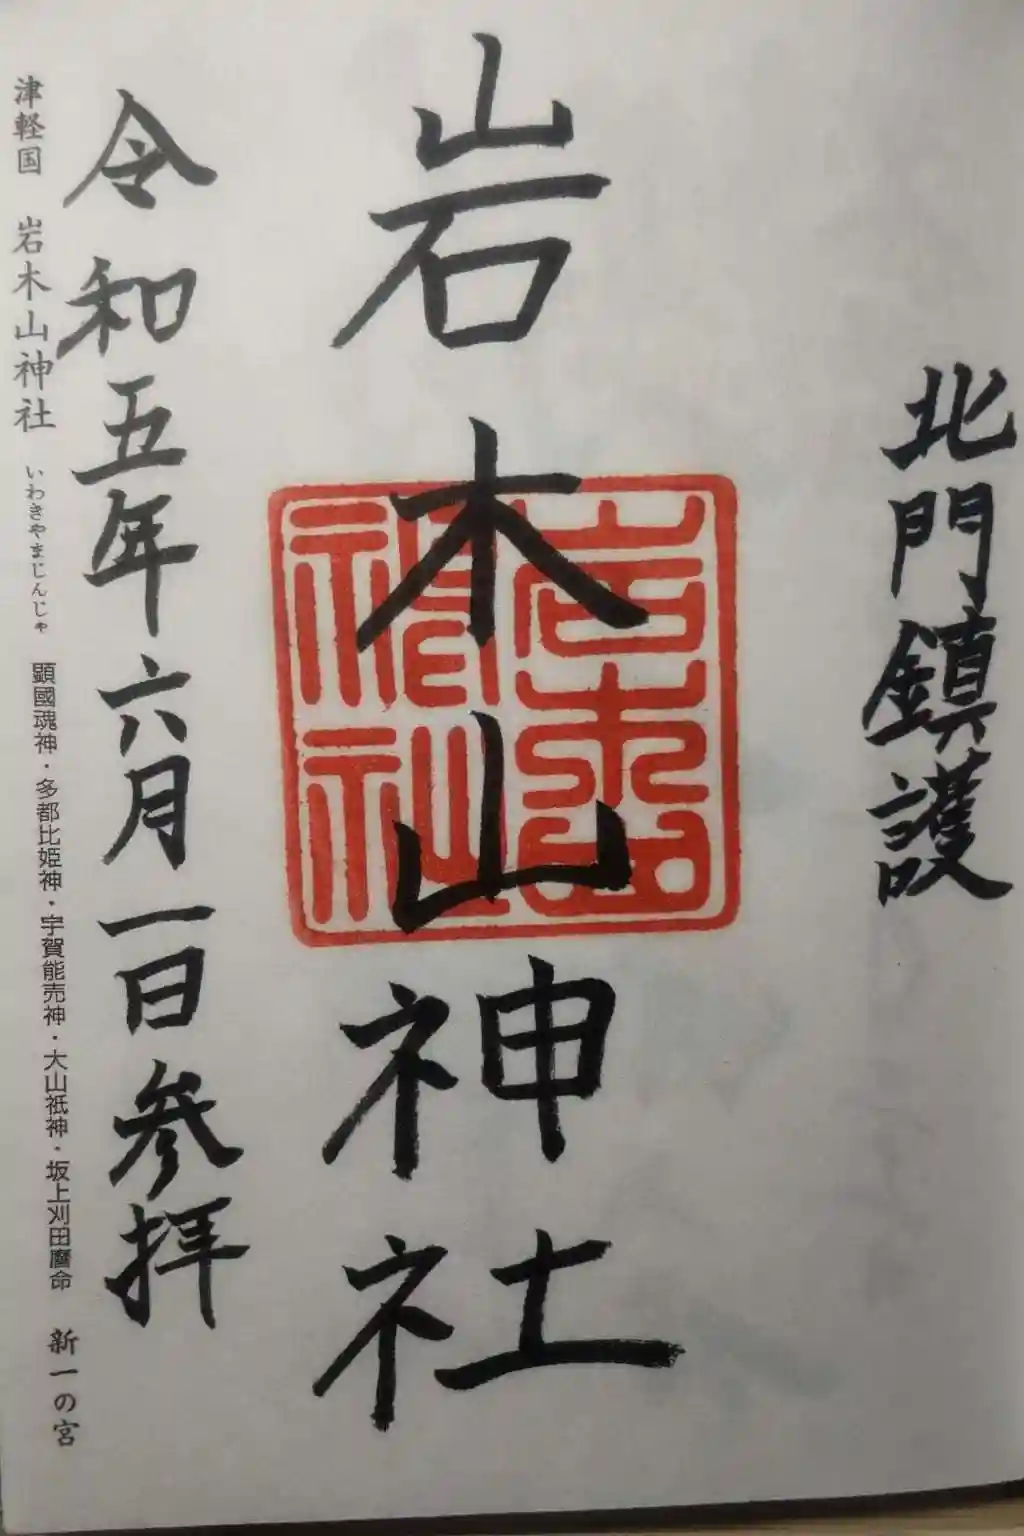 北門鎮護
岩木山神社
岩木山
神社
令和五年六月一日参拝
津軽国 岩木山神社 いわきやまじんじゃ 顕國魂神・多都比姫神・宇賀能売神・大山祇神・坂上刈田麿命 新一の宮